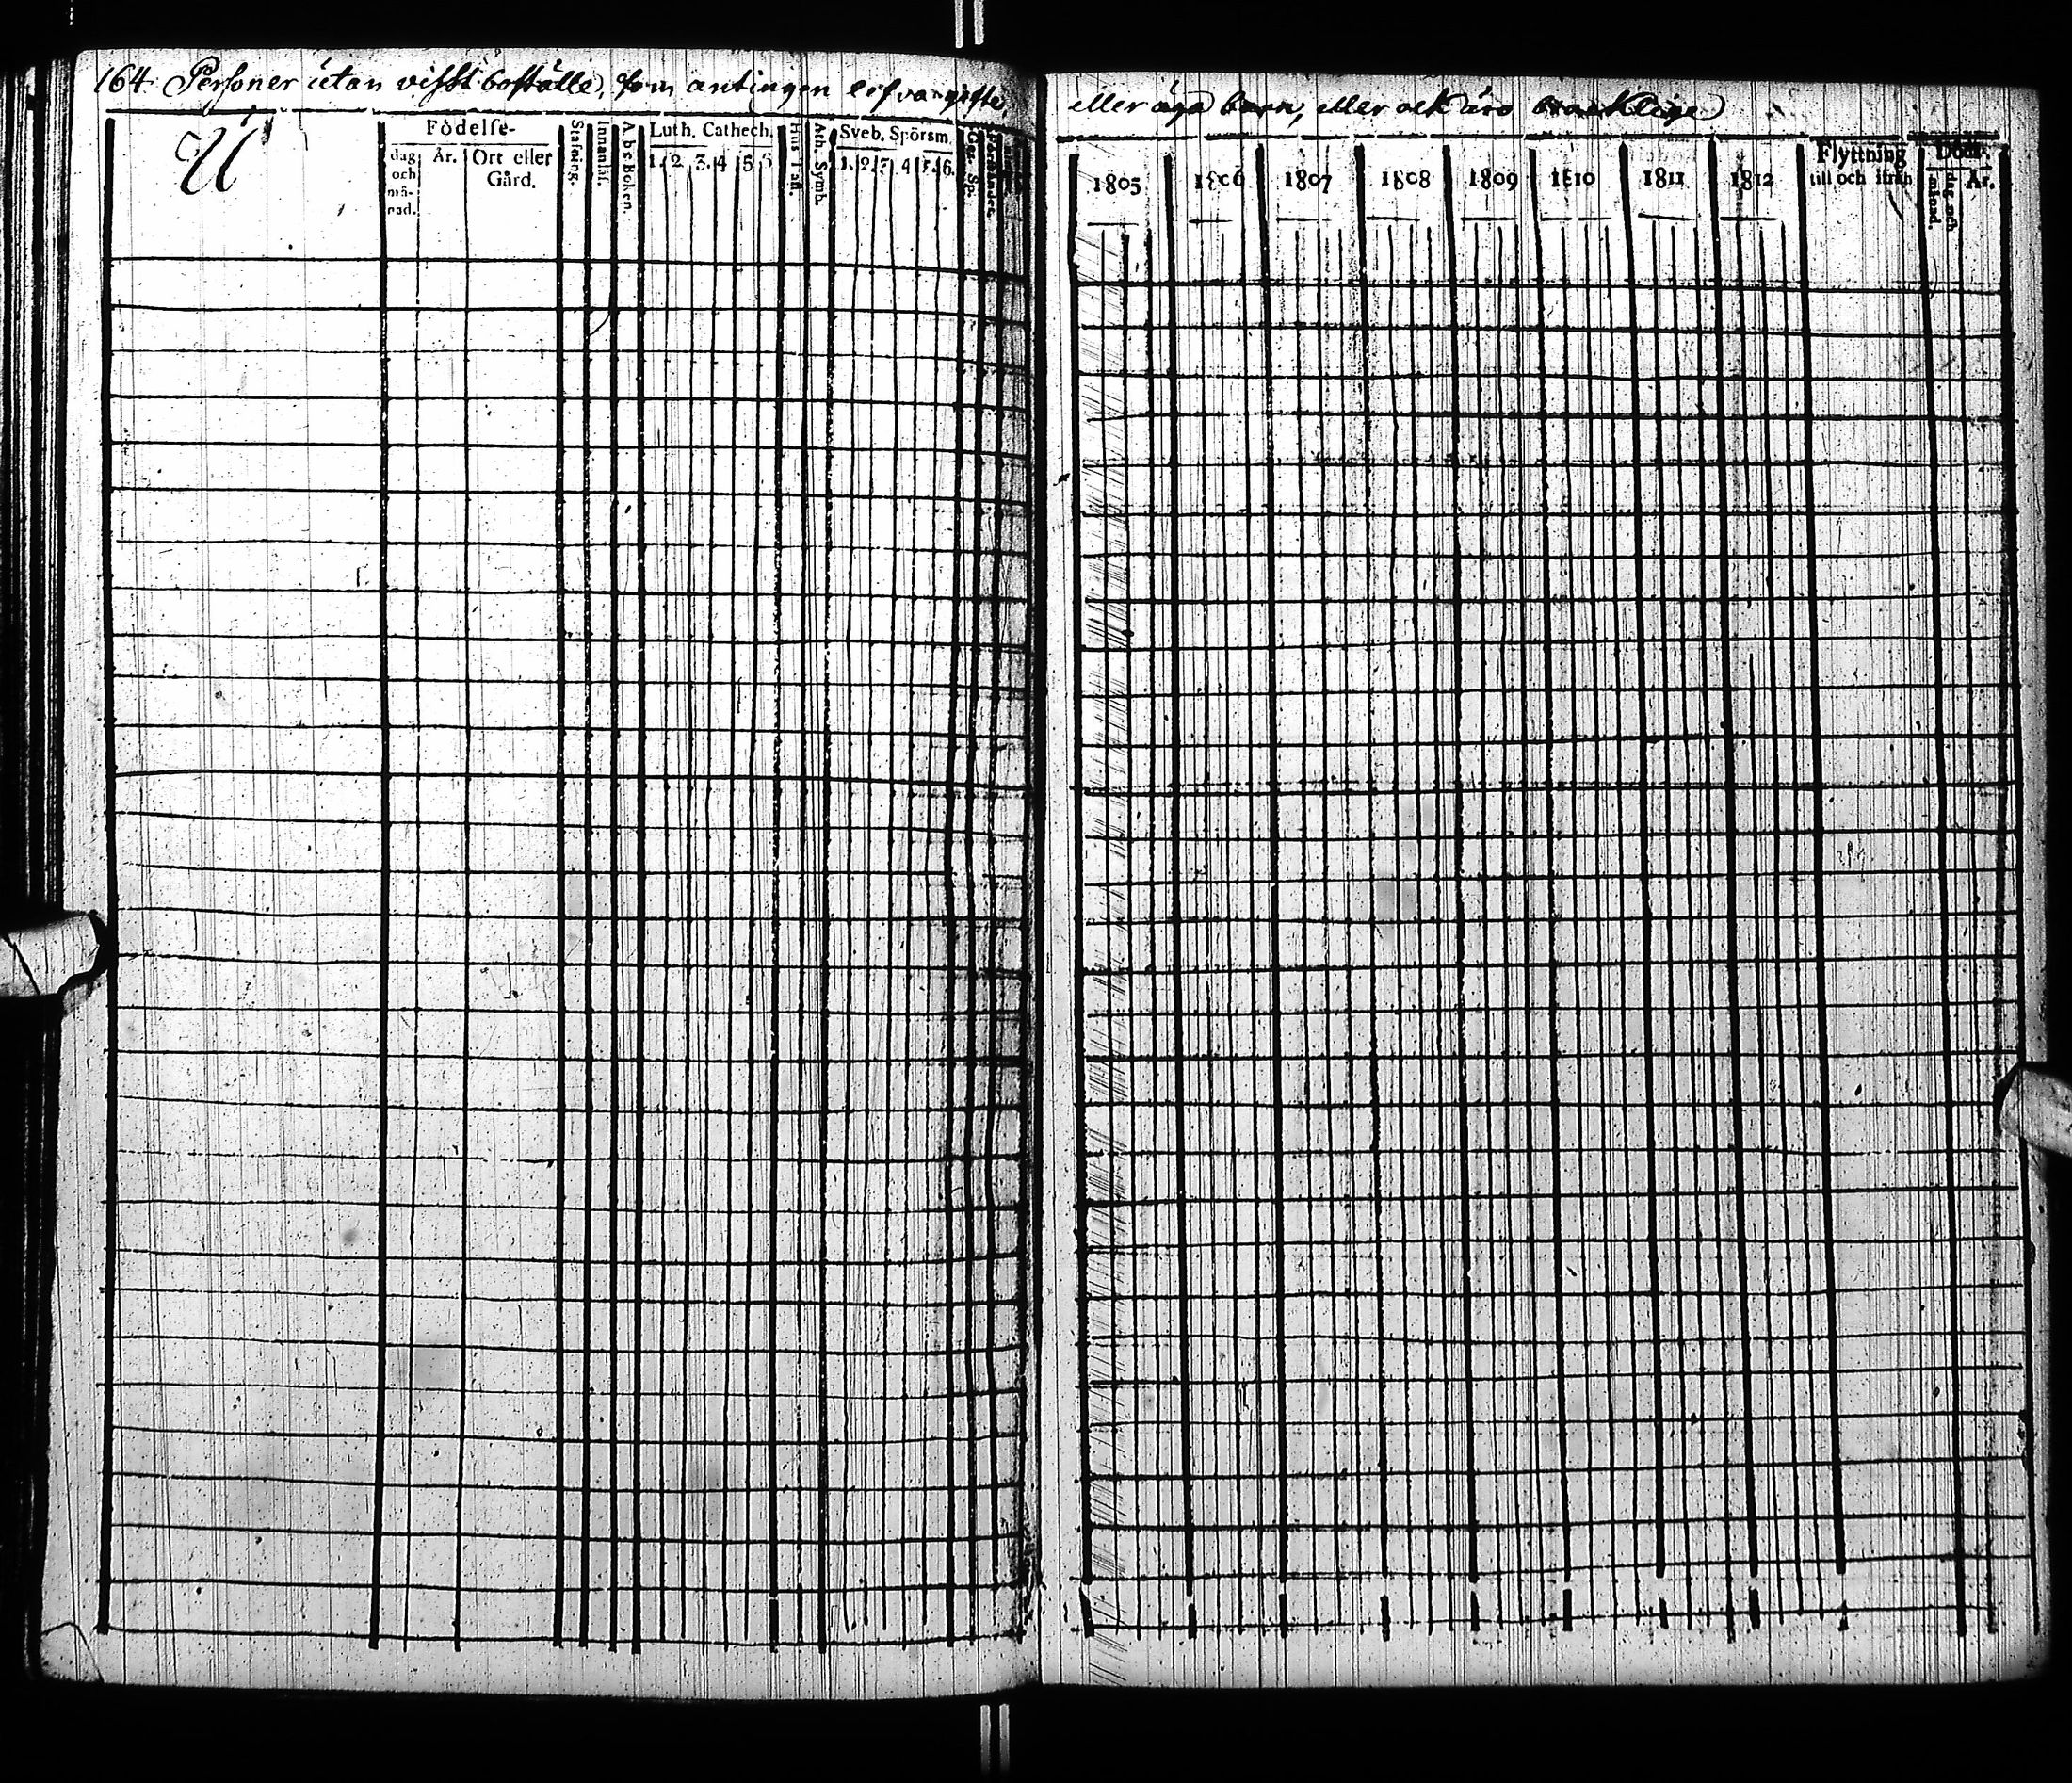 164. Personer utan visst boställe, som antingen
eller äga barn, eller ock äro
U
Födelse-
dag och må- nad.
År.
Ort eller Gård.
Stafning.
Innanläs.
A.b.c.Boken.
Luth. Cathech.
1. 2 3. 4 5 6
Hus Tafl.
Ath. Symb.
Sveb. Spörsm.
1. 2. 3. 4 5. 6.
1805 1806 1807 1808 1809 1810 1811 1812
Flyttning
till och ifrån
Död.
dag och månad.
År.